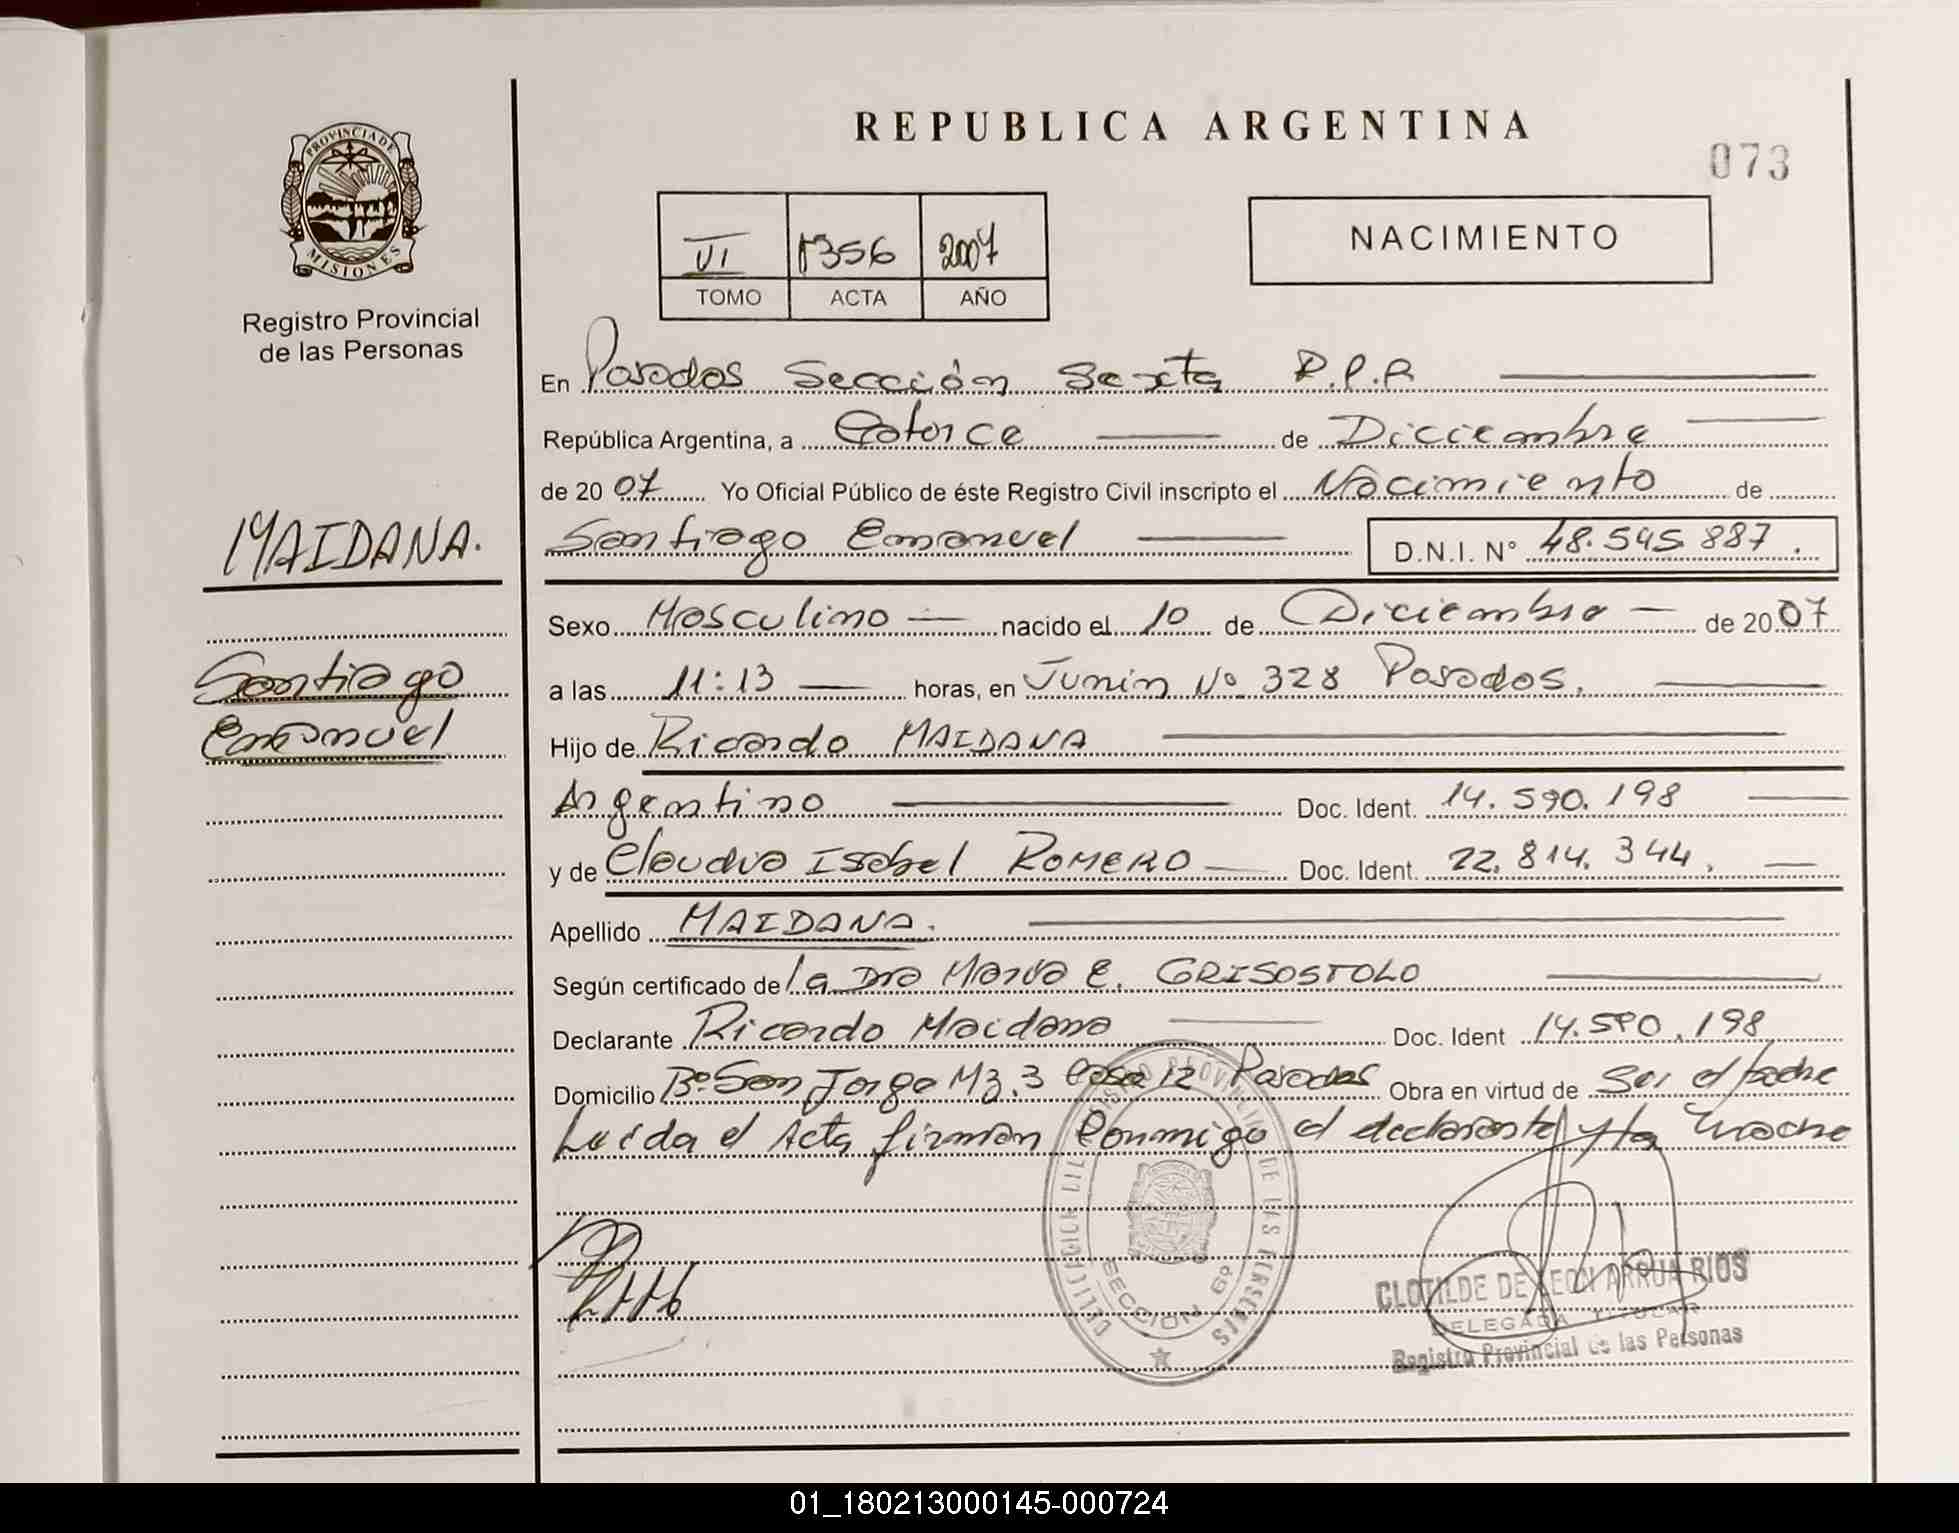 REPUBLICA ARGENTINA
073
PROVINCIA DE
MISIONES
Registro Provincial
de las Personas
VI 1356 2007
TOMO ACTA AÑO
NACIMIENTO
En Posadas Sección Sexta R.P.P
República Argentina, a Catorce de Diciembre
de 20 07 Yo Oficial Público de éste Registro Civil inscripto el Nacimiento de
Santiago Emanuel D.N.I. N° 48.545.887.
MAIDANA.
Santiago
Emanuel
Sexo Masculino nacido el 10 de Diciembre de 20 07
a las 11:13 horas, en Junin Nº 328 Posadas.
Hijo de Ricardo MAIDANA
Argentino Doc. Ident. 14.590.198
y de Claudia Isabel ROMERO Doc. Ident. 22.814.344.
Apellido MAIDANA.
Según certificado de la Dra María E. GRISOSTOLO
Declarante Ricardo Maidana Doc. Ident 14.590.198
Domicilio Bº San Jorge Mz.3 Casa 12 Posadas Obra en virtud de Ser el padre
Leída el Acta firman Conmigo el declarante y la madre
SECCION 6º
CLOTILDE DE LEON ARRUA RIOS
DELEGADA TITULAR
Registro Provincial de las Personas
01_180213000145-000724